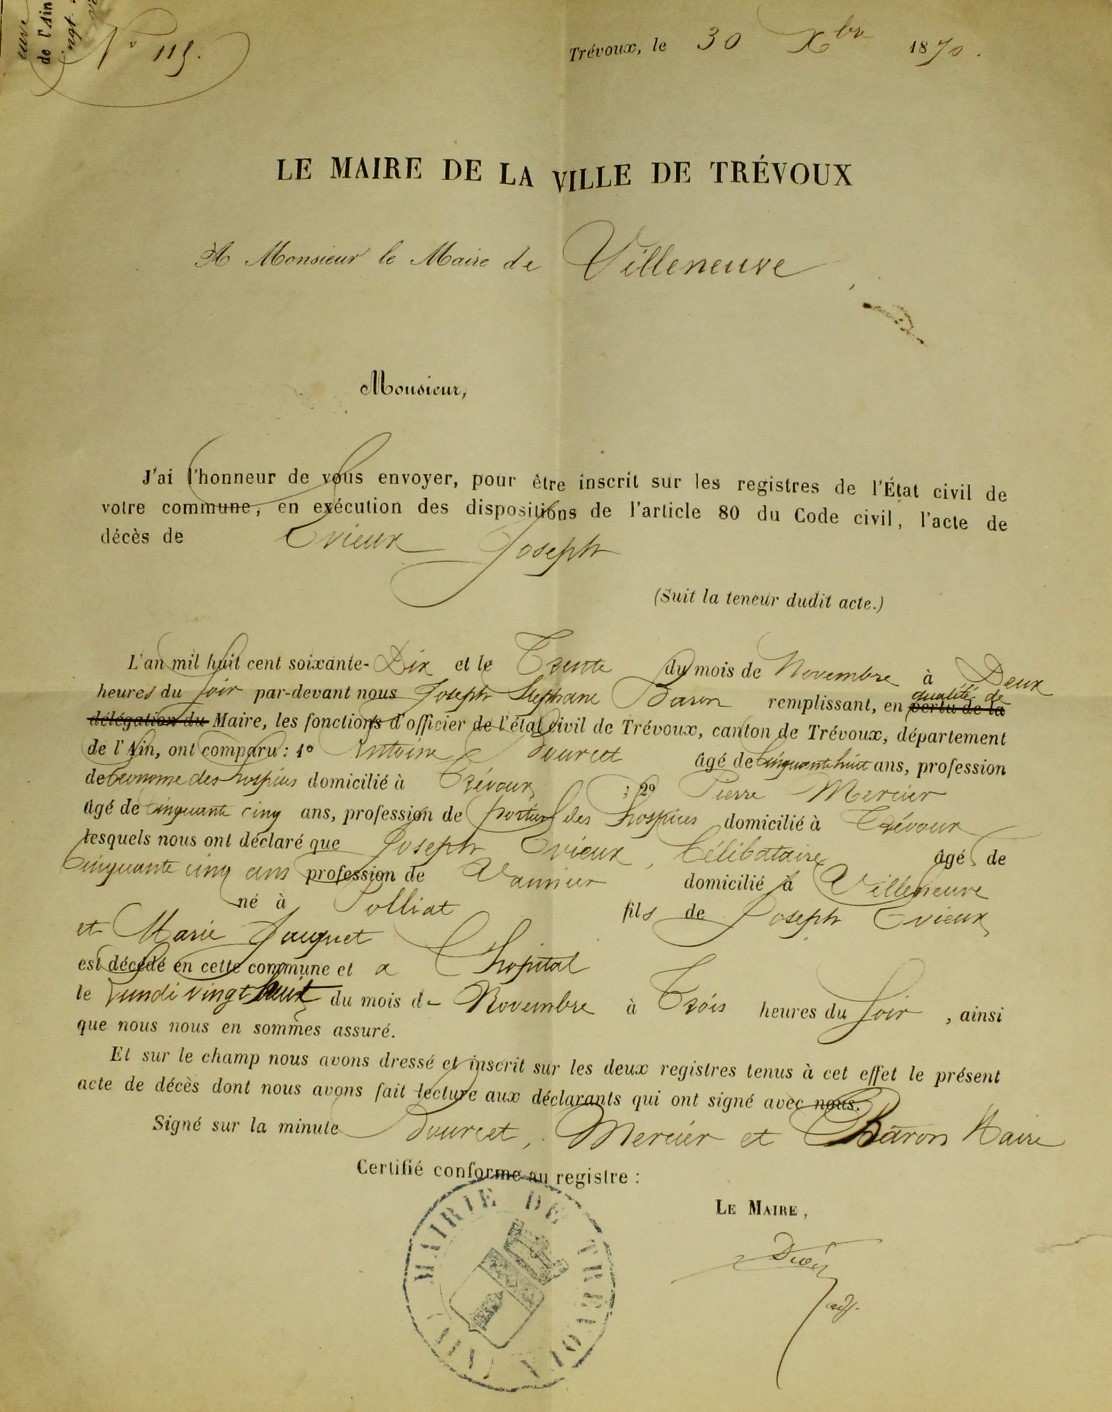 N° 115.
de l'Ain
Trévoux, le 30 Xbre 1870.
LE MAIRE DE LA VILLE DE TRÉVOUX
A Monsieur le Maire de Villeneuve
Monsieur,
J'ai l'honneur de vous envoyer, pour être inscrit sur les registres de l'État civil de
votre commune, en exécution des dispositions de l'article 80 du Code civil, l'acte de
décès de Evieux Joseph
(Suit la teneur dudit acte.)
L'an mil huit cent soixante-Dix et le Trente du mois de Novembre à Deux
heures du soir par-devant nous Joseph Stéphane Baron remplissant, en qualité de vertu de la
délégation du Maire, les fonctions d'officier de l'état civil de Trévoux, canton de Trévoux, département
de l'Ain, ont comparu : 1° Antoine Dourcet âgé de Cinquante huit ans, profession
de Econome des hospices domicilié à Trévoux ; 2° Pierre Mercier
âgé de Cinquante cinq ans, profession de portier des hospices domicilié à Trévoux
lesquels nous ont déclaré que Joseph Evieux, Célibataire âgé de
Cinquante cinq ans profession de Vannier domicilié à Villeneuve
né à Polliat fils de Joseph Evieux
et Marie Jouquet
est décédé en cette commune et a l'hopital
le Lundi vingt huit du mois de Novembre à Trois heures du soir, ainsi
que nous nous en sommes assuré.
Et sur le champ nous avons dressé et inscrit sur les deux registres tenus à cet effet le présent
acte de décès dont nous avons fait lecture aux déclarants qui ont signé avec nous.
Signé sur la minute Dourcet, Mercier et Baron Maire
Certifié conforme au registre :
LE MAIRE,
adj.
MAIRIE DE TREVOUX (AIN)